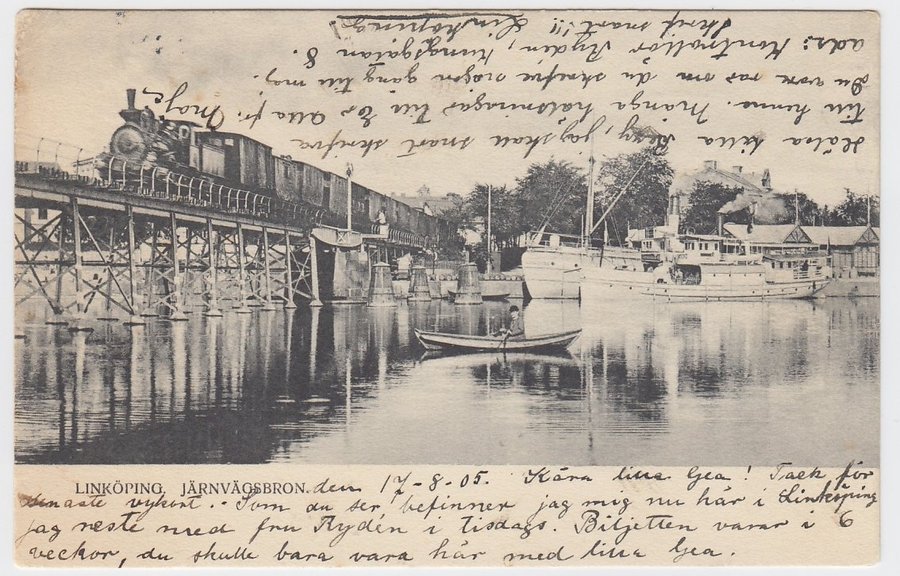 LINKÖPING. JÄRNVÄGSBRON. den 17-8-05. Kära lilla Gea! Tack för
senaste vykort. Som du ser befinner jag mig nu här i Linköping
jag reste med fru Rydén i tisdags. Biljetten varar i 6
veckor, du skulle bara vara här med lilla Gea.
Hälsa lilla jag skall snart skrifva
till henne. Många hälsningar till Er alla fr. Maje
Du var rar om du skrefve någon gång till mej.
adr: Kontrollör Rydén, Kungsgatan 8.
Skrif snart!!! Linköping.